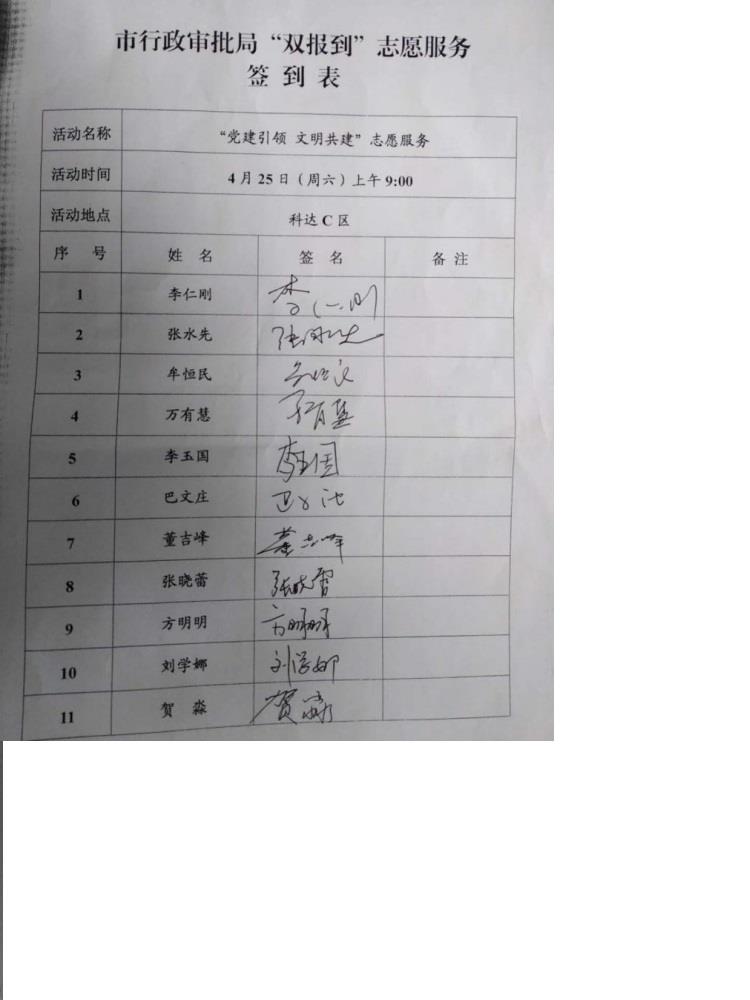 市行政审批局“双报到”志愿服务
签 到 表
活动名称 “党建引领 文明共建”志愿服务
活动时间 4月25日（周六）上午9:00
活动地点 科达C区
序 号 姓 名 签 名 备 注
1 李仁刚 李仁刚
2 张水先 张水先
3 牟恒民
4 万有慧 万有慧
5 李玉国 李玉国
6 巴文庄
7 董吉峰 董吉峰
8 张晓蕾 张晓蕾
9 方明明 方明明
10 刘学娜 刘学娜
11 贺 淼 贺淼